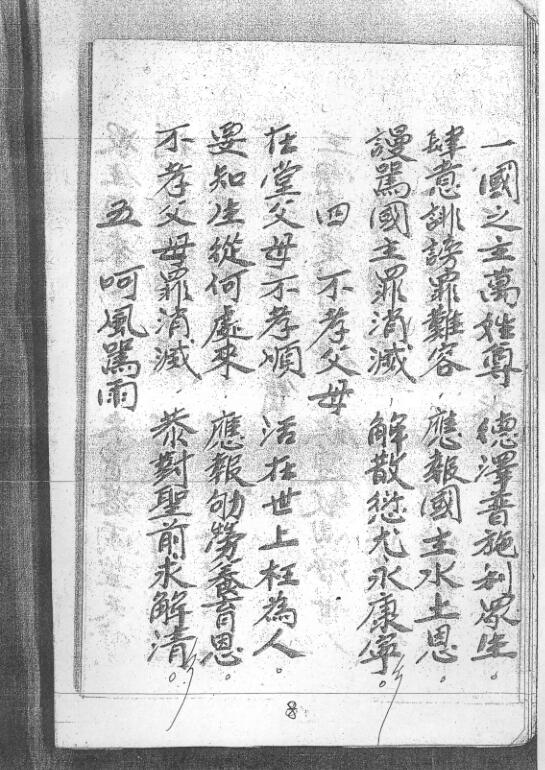 一國之主萬姓尊，德澤普施利眾生。
肆意誹謗罪難容，應報國主水土恩。
謾罵國主罪消滅，解散愆尤永康寧。
四 不孝父母
在堂父母不孝順，活在世上枉為人。
要知生從何處來，應報劬勞養育恩。
不孝父母罪消滅，恭對聖前求解清。
五 呵風罵雨
8